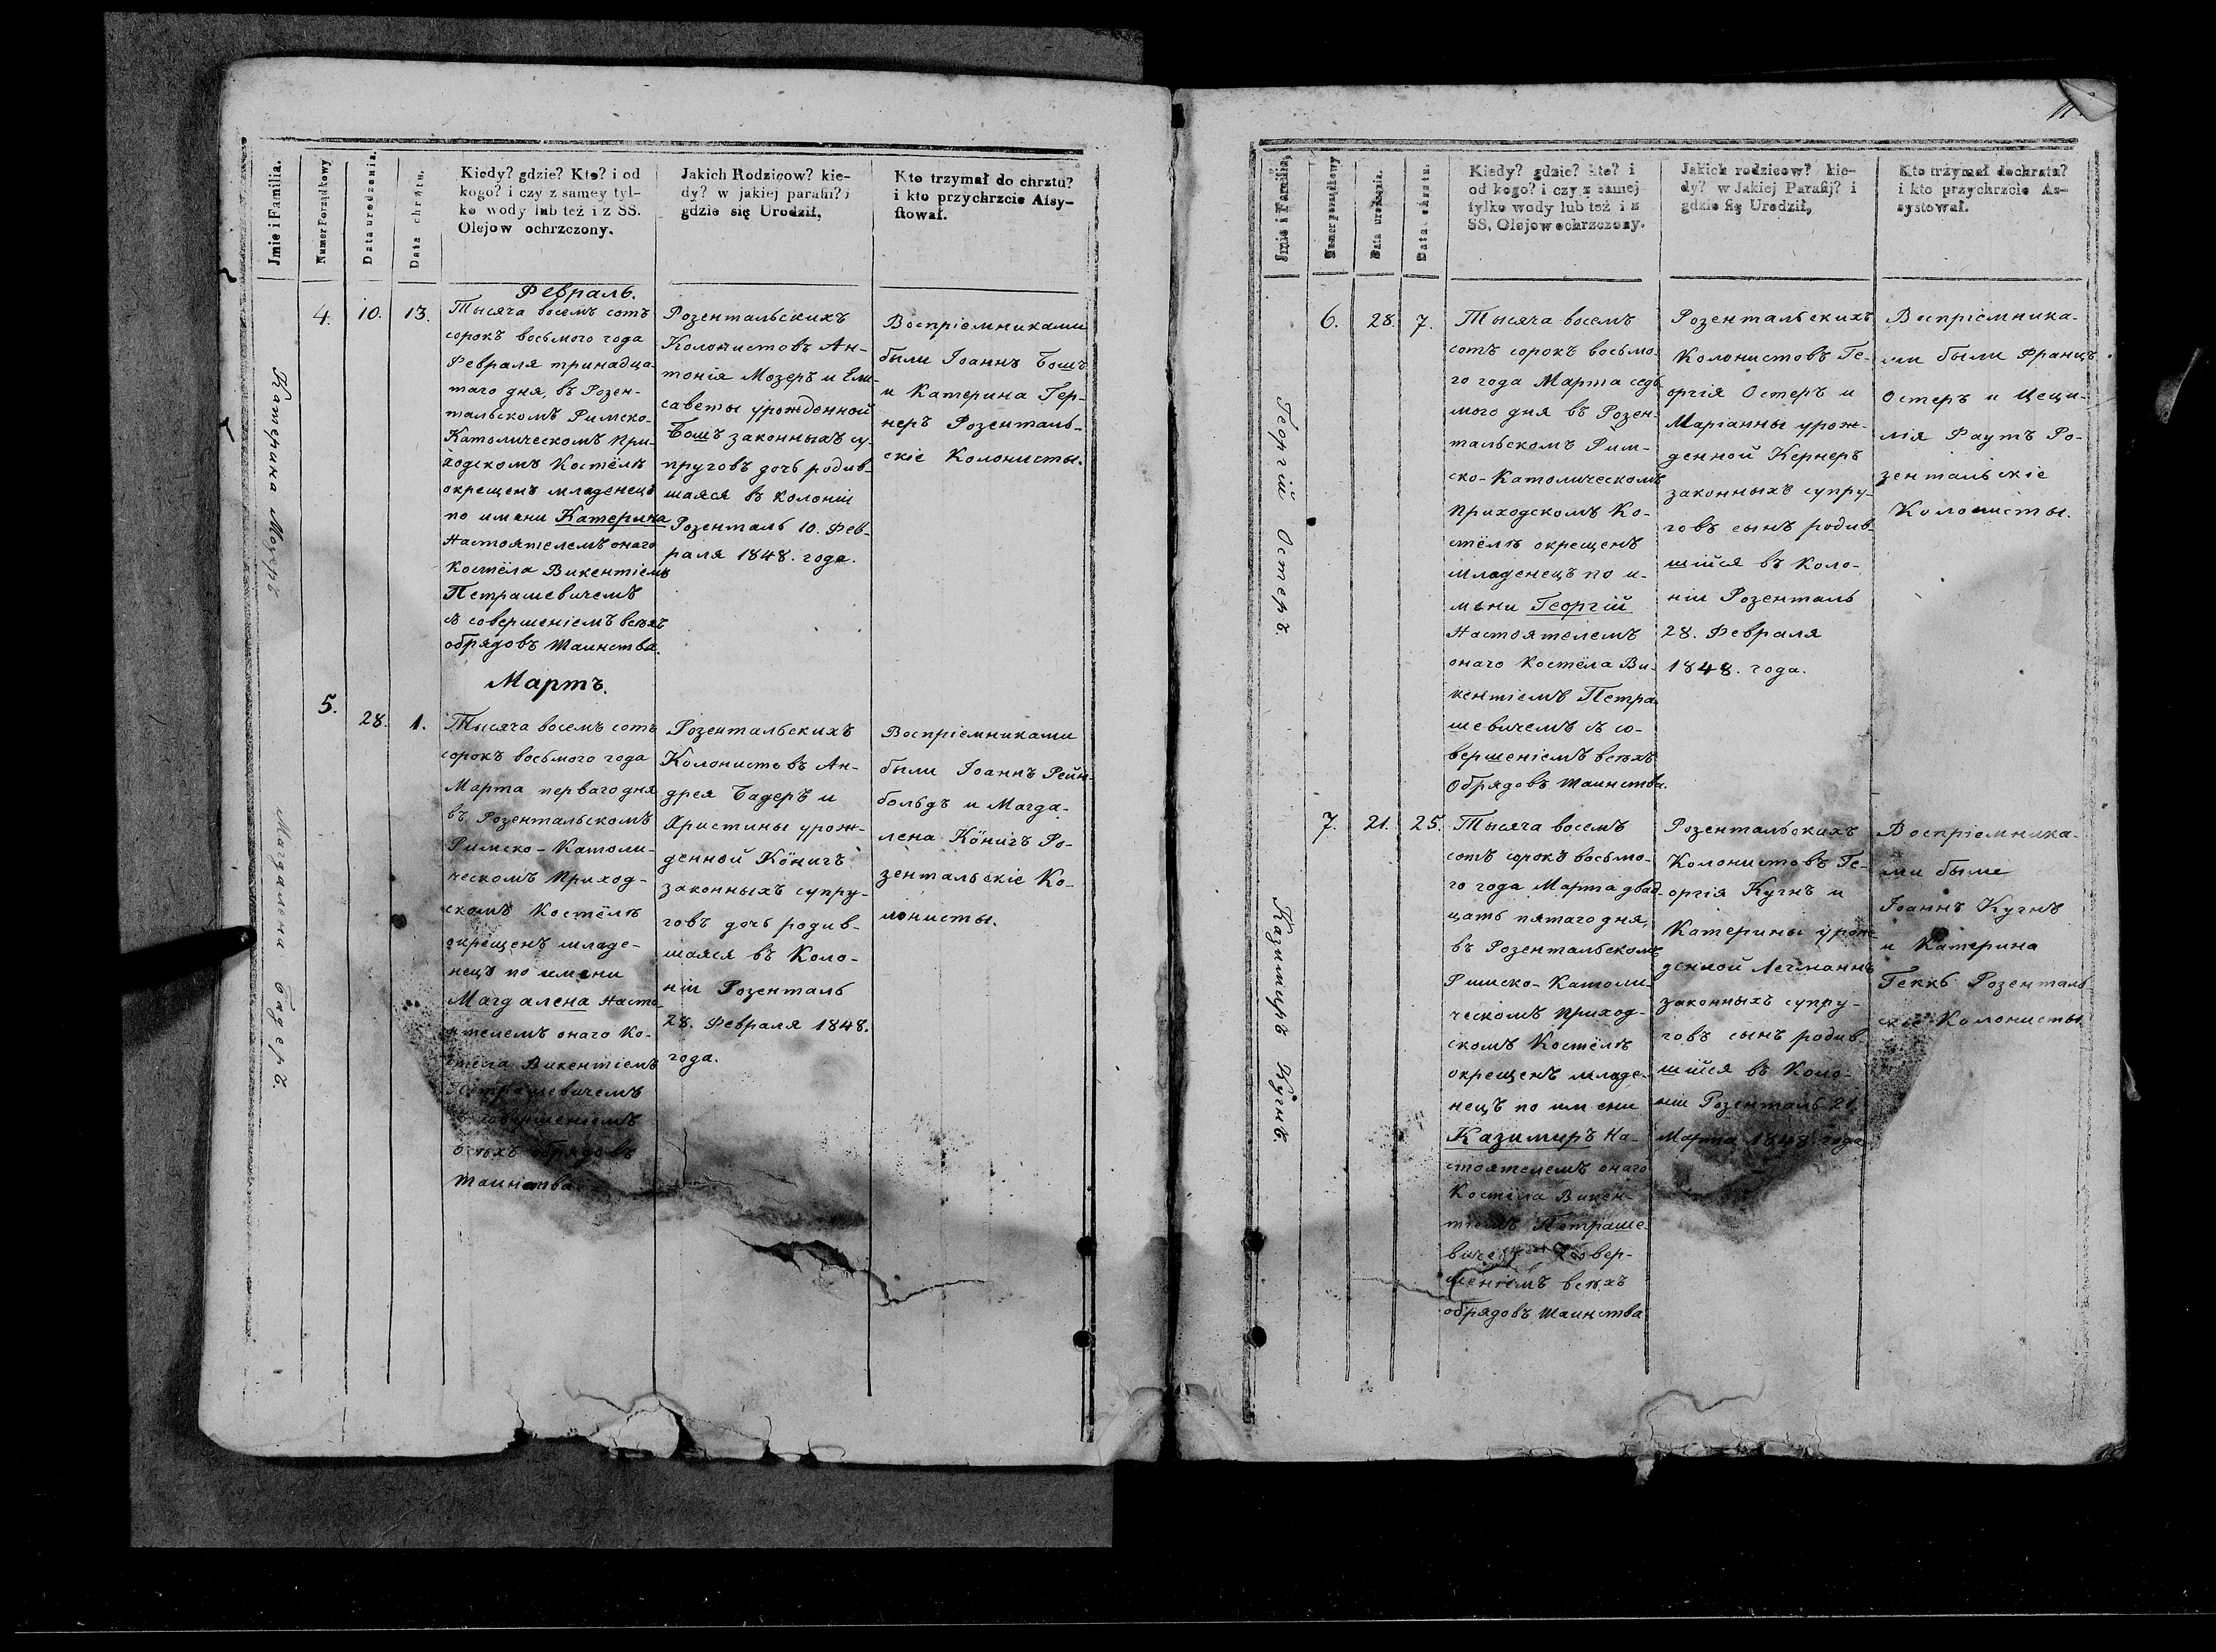 Jmie i Familia.
Numer Porządkowy
Data urodzenia.
Data chrztu.
Kiedy? gdzie? Kto? i od
kogo? i czy z samey tyl-
ko wody lub też i z SS.
Olejow ochrzczony.
Jakich Rodzicow? kie-
dy? w jakiej parafii? i
gdzie się Urodził,
Kto trzymał do chrztu?
i kto przychrzcie Afsy-
stował.
Катерина Мозеръ
Февраль.
4. 10. 13.
Тысяча восемъ сотъ
сорокъ восьмого года
Февраля тринадца-
таго дня, въ Розен-
тальскомъ Римско-
Католическомъ При-
ходскомъ Костёлѣ
окрещенъ младенецъ
по имени Катерина
Настоятелемъ онаго
Костёла Викентіемъ
Петрашевичемъ
съ совершеніемъ всѣхъ
обрядовъ таинства.
Розентальскихъ
Колонистовъ Ан-
тонія Мозеръ и Ели-
саветы урожденной
Бошъ законныхъ су-
пруговъ дочь родив-
шаяся въ колоніи
Розенталь 10. Фев-
раля 1848. года.
Воспріемниками
были Іоаннъ Бошъ
и Катерина Гер-
неръ Розенталь-
скіе Колонисты.
Магдалена Бадеръ.
Мартъ.
5. 28. 1.
Тысяча восемъ сотъ
сорокъ восьмого года
Марта перваго дня
въ Розентальскомъ
Римско-Католи-
ческомъ Приход-
скомъ Костёлѣ
окрещенъ младе-
нецъ по имени
Магдалена Насто-
ятелемъ онаго Ко-
стёла Викентіемъ
Петрашевичемъ
съ совершеніемъ
всѣхъ обрядовъ
таинства.
Розентальскихъ
Колонистовъ Ан-
дрея Бадеръ и
Христины урож-
денной Кöнигъ
законныхъ супру-
говъ дочь родив-
шаяся въ Коло-
ніи Розенталь
28. Февраля 1848.
года.
Воспріемниками
были Іоаннъ Рейн-
больдъ и Магда-
лена Кöнигъ Ро-
зентальскіе Ко-
лонисты.
Jmie i Familia.
Numer porządkowy
Data urodzenia.
Data chrztu.
Kiedy? gdzie? kto? i
od kogo? i czy z samej
tylko wody lub też i z
SS. Olejow ochrzczony.
Jakich rodzicow? kie-
dy? w Jakiej Parafij? i
gdzie się Urodził,
Kto trzymał dochrztu?
i kto przychrzcie As-
systował.
Георгій Остеръ.
6. 28. 7.
Тысяча восемъ
сотъ сорокъ восьмо-
го года Марта седь-
мого дня въ Розен-
тальскомъ Рим-
ско-Католическомъ
Приходскомъ Ко-
стёлѣ окрещенъ
младенецъ по и-
мени Георгій
Настоятелемъ
онаго Костёла Ви-
кентіемъ Петра-
шевичемъ съ со-
вершеніемъ всѣхъ
обрядовъ таинства.
Розентальскихъ
Колонистовъ Ге-
оргія Остеръ и
Маріанны урож-
денной Кернеръ
законныхъ супру-
говъ сынъ родив-
шійся въ Коло-
ніи Розенталь
28. Февраля
1848. года.
Воспріемника-
ми были Францъ
Остеръ и Цеци-
лія Фаутъ Ро-
зентальскіе
Колонисты.
Казимиръ Кугнъ.
7. 21. 25.
Тысяча восемъ
сотъ сорокъ восьмо-
го года Марта двад-
цать пятаго дня,
въ Розентальскомъ
Римско-Католи-
ческомъ Приход-
скомъ Костёлѣ
окрещенъ младе-
нецъ по имени
Казимиръ На-
стоятелемъ онаго
Костёла Викен-
тіемъ Петраше-
вичемъ съ совер-
шеніемъ всѣхъ
обрядовъ таинства
Розентальскихъ
Колонистовъ Ге-
оргія Кугнъ и
Катерины урож-
денной Легманнъ
законныхъ супру-
говъ сынъ родив-
шійся въ Коло-
ніи Розенталь 21.
Марта 1848. года
Воспріемника-
ми были
Іоаннъ Кугнъ
и Катерина
Геккъ Розенталь-
скіе Колонисты.